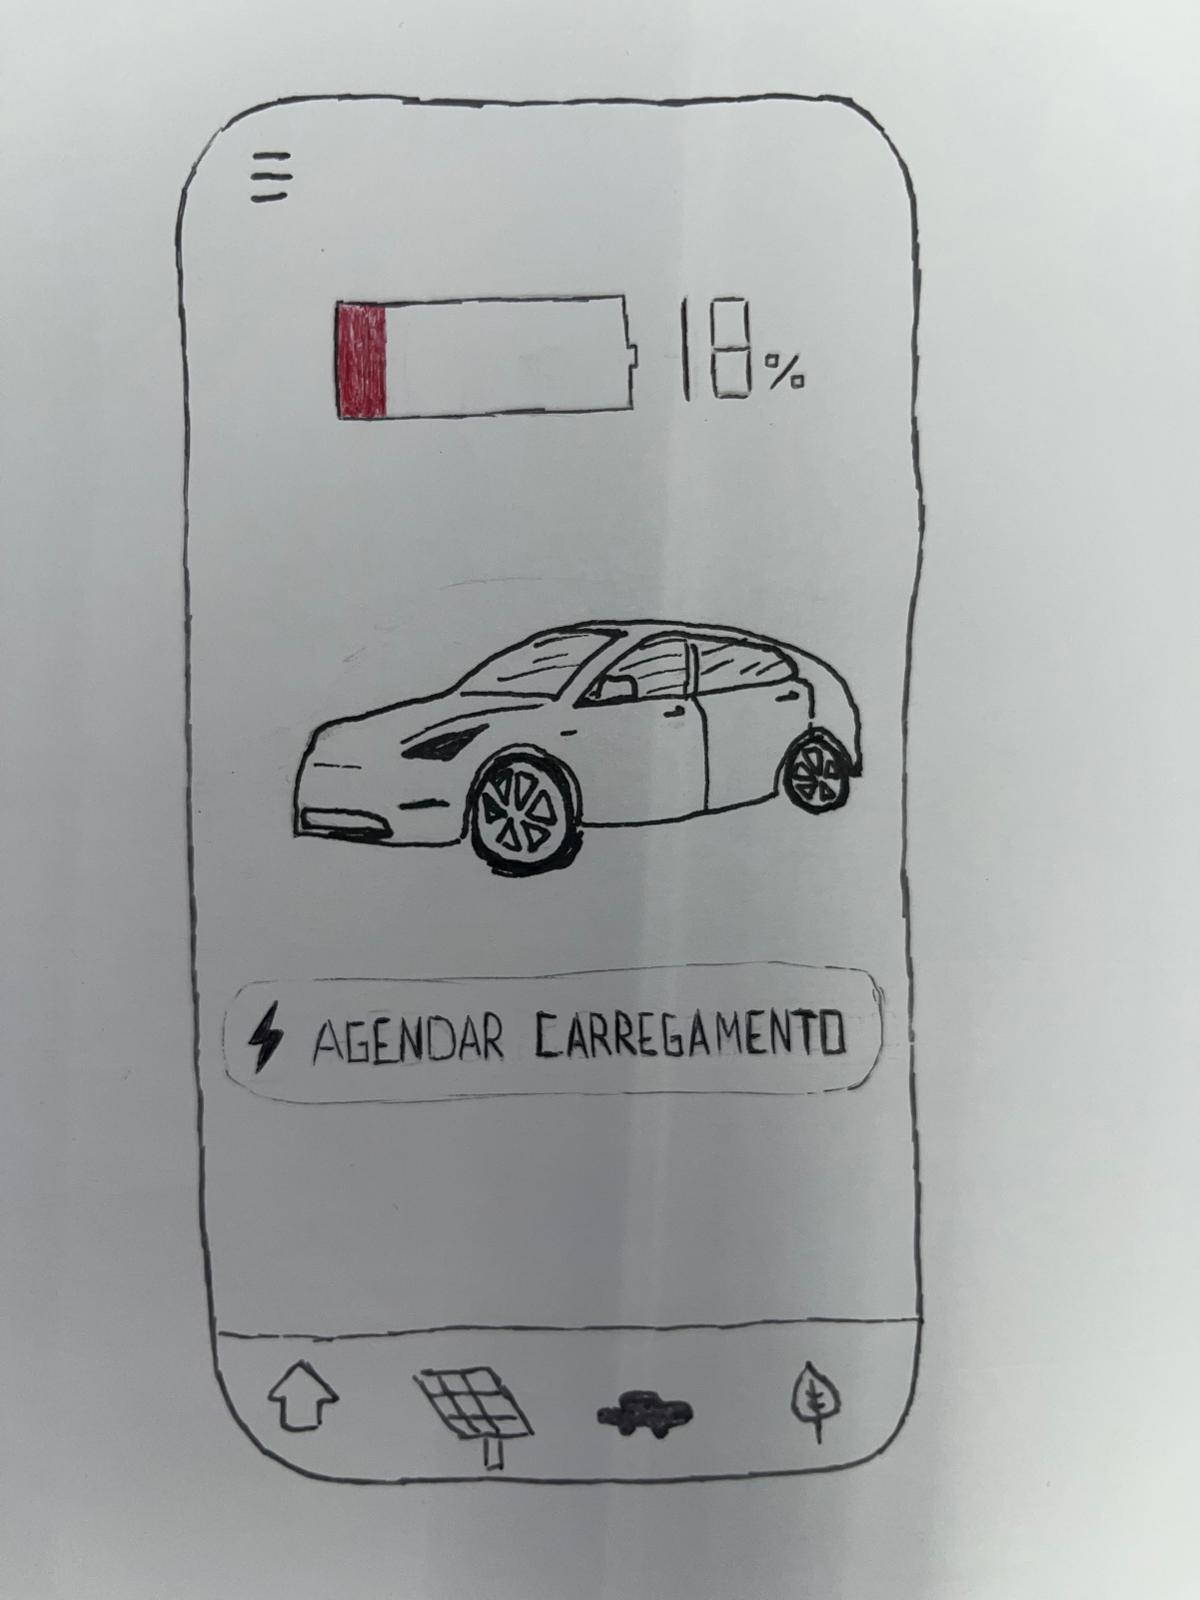 18%
AGENDAR CARREGAMENTO